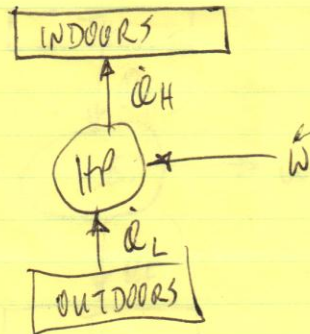 INDOORS
Q̇H
HP
Ẇ
Q̇L
OUTDOORS